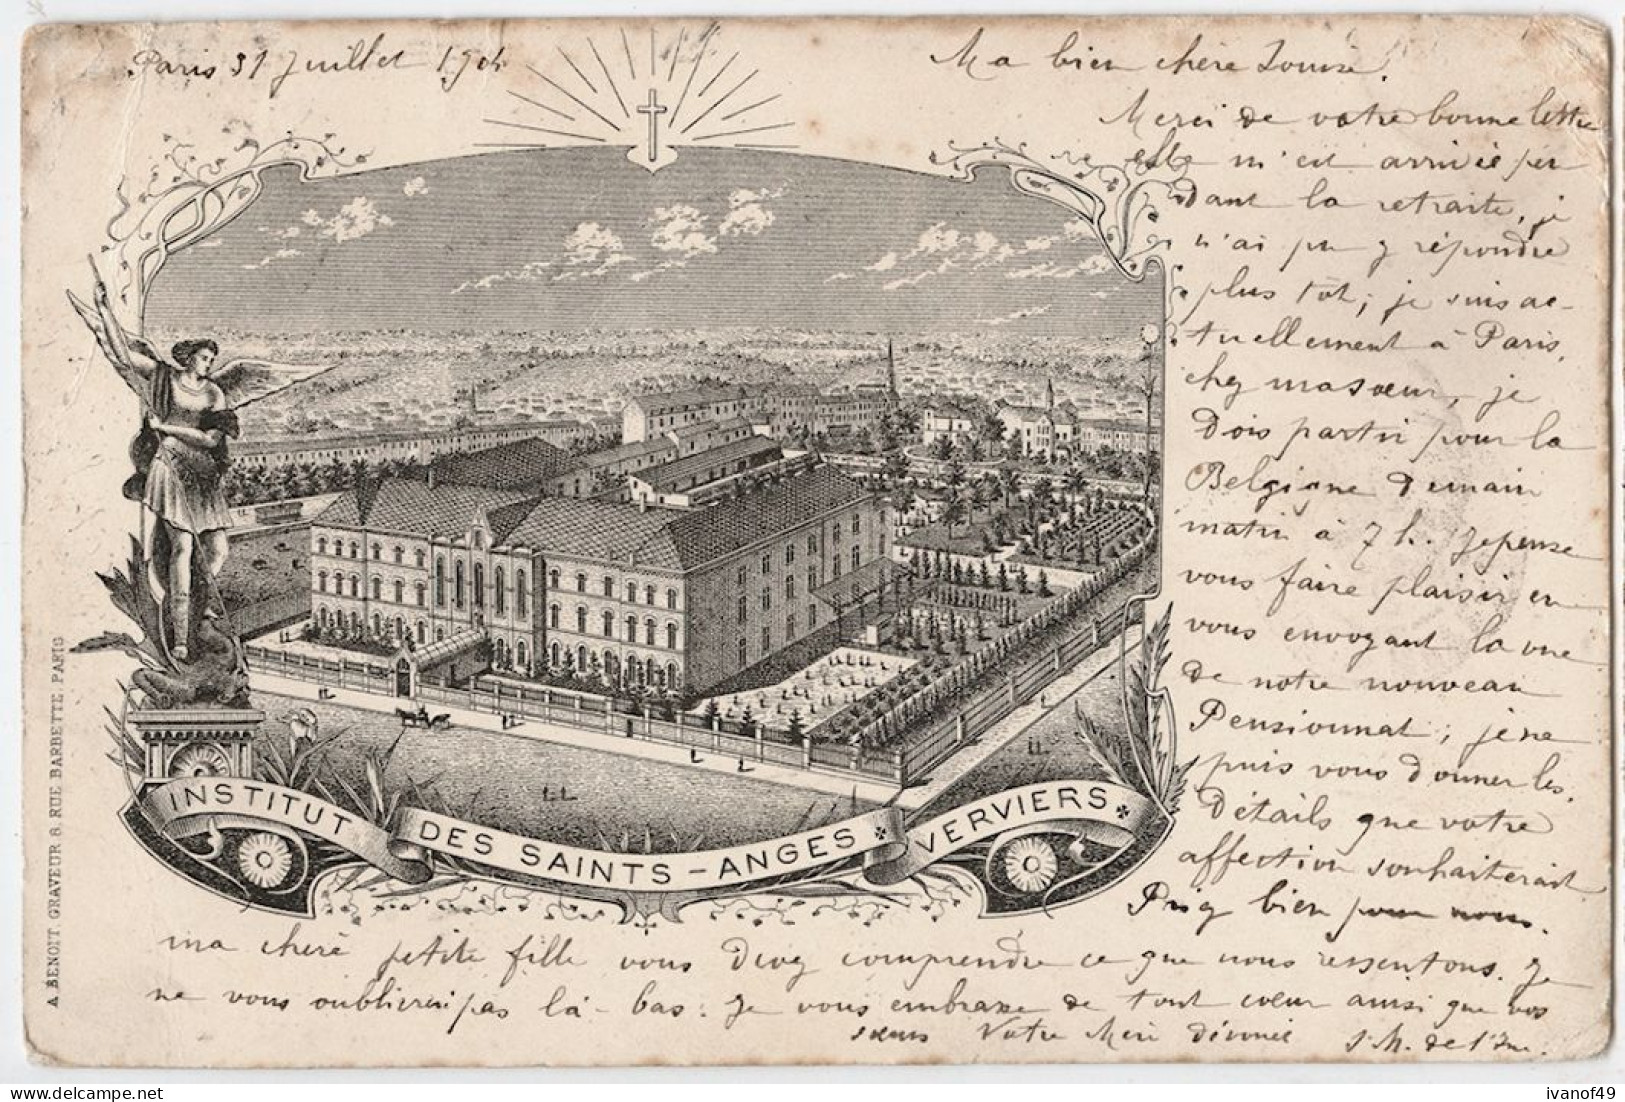 Paris 31 Juillet 190
Ma bien chère Louise.
Merci de votre bonne lettre
elle m'est arrivée pen
dant la retraite, je
n'ai pu y répondre
plus tôt; je suis ac-
tuellement à Paris,
chez ma sœur, je
dois partir pour la
Belgique demain
matin à 7 h. Je pense
vous faire plaisir en
vous envoyant la vue
de notre nouveau
Pensionnat; je ne
puis vous donner les
détails que votre
affection souhaiterait
Priez bien pour nous.
ma chère petite fille vous devez comprendre ce que nous ressentons. Je
ne vous oublierai pas là-bas. Je vous embrasse de tout cœur ainsi que vos
sœurs Votre Mère dévouée S. M. de l'
INSTITUT DES SAINTS-ANGES VERVIERS
A. BENOIT. GRAVEUR 8, RUE BARBETTE PARIS
ivanof49